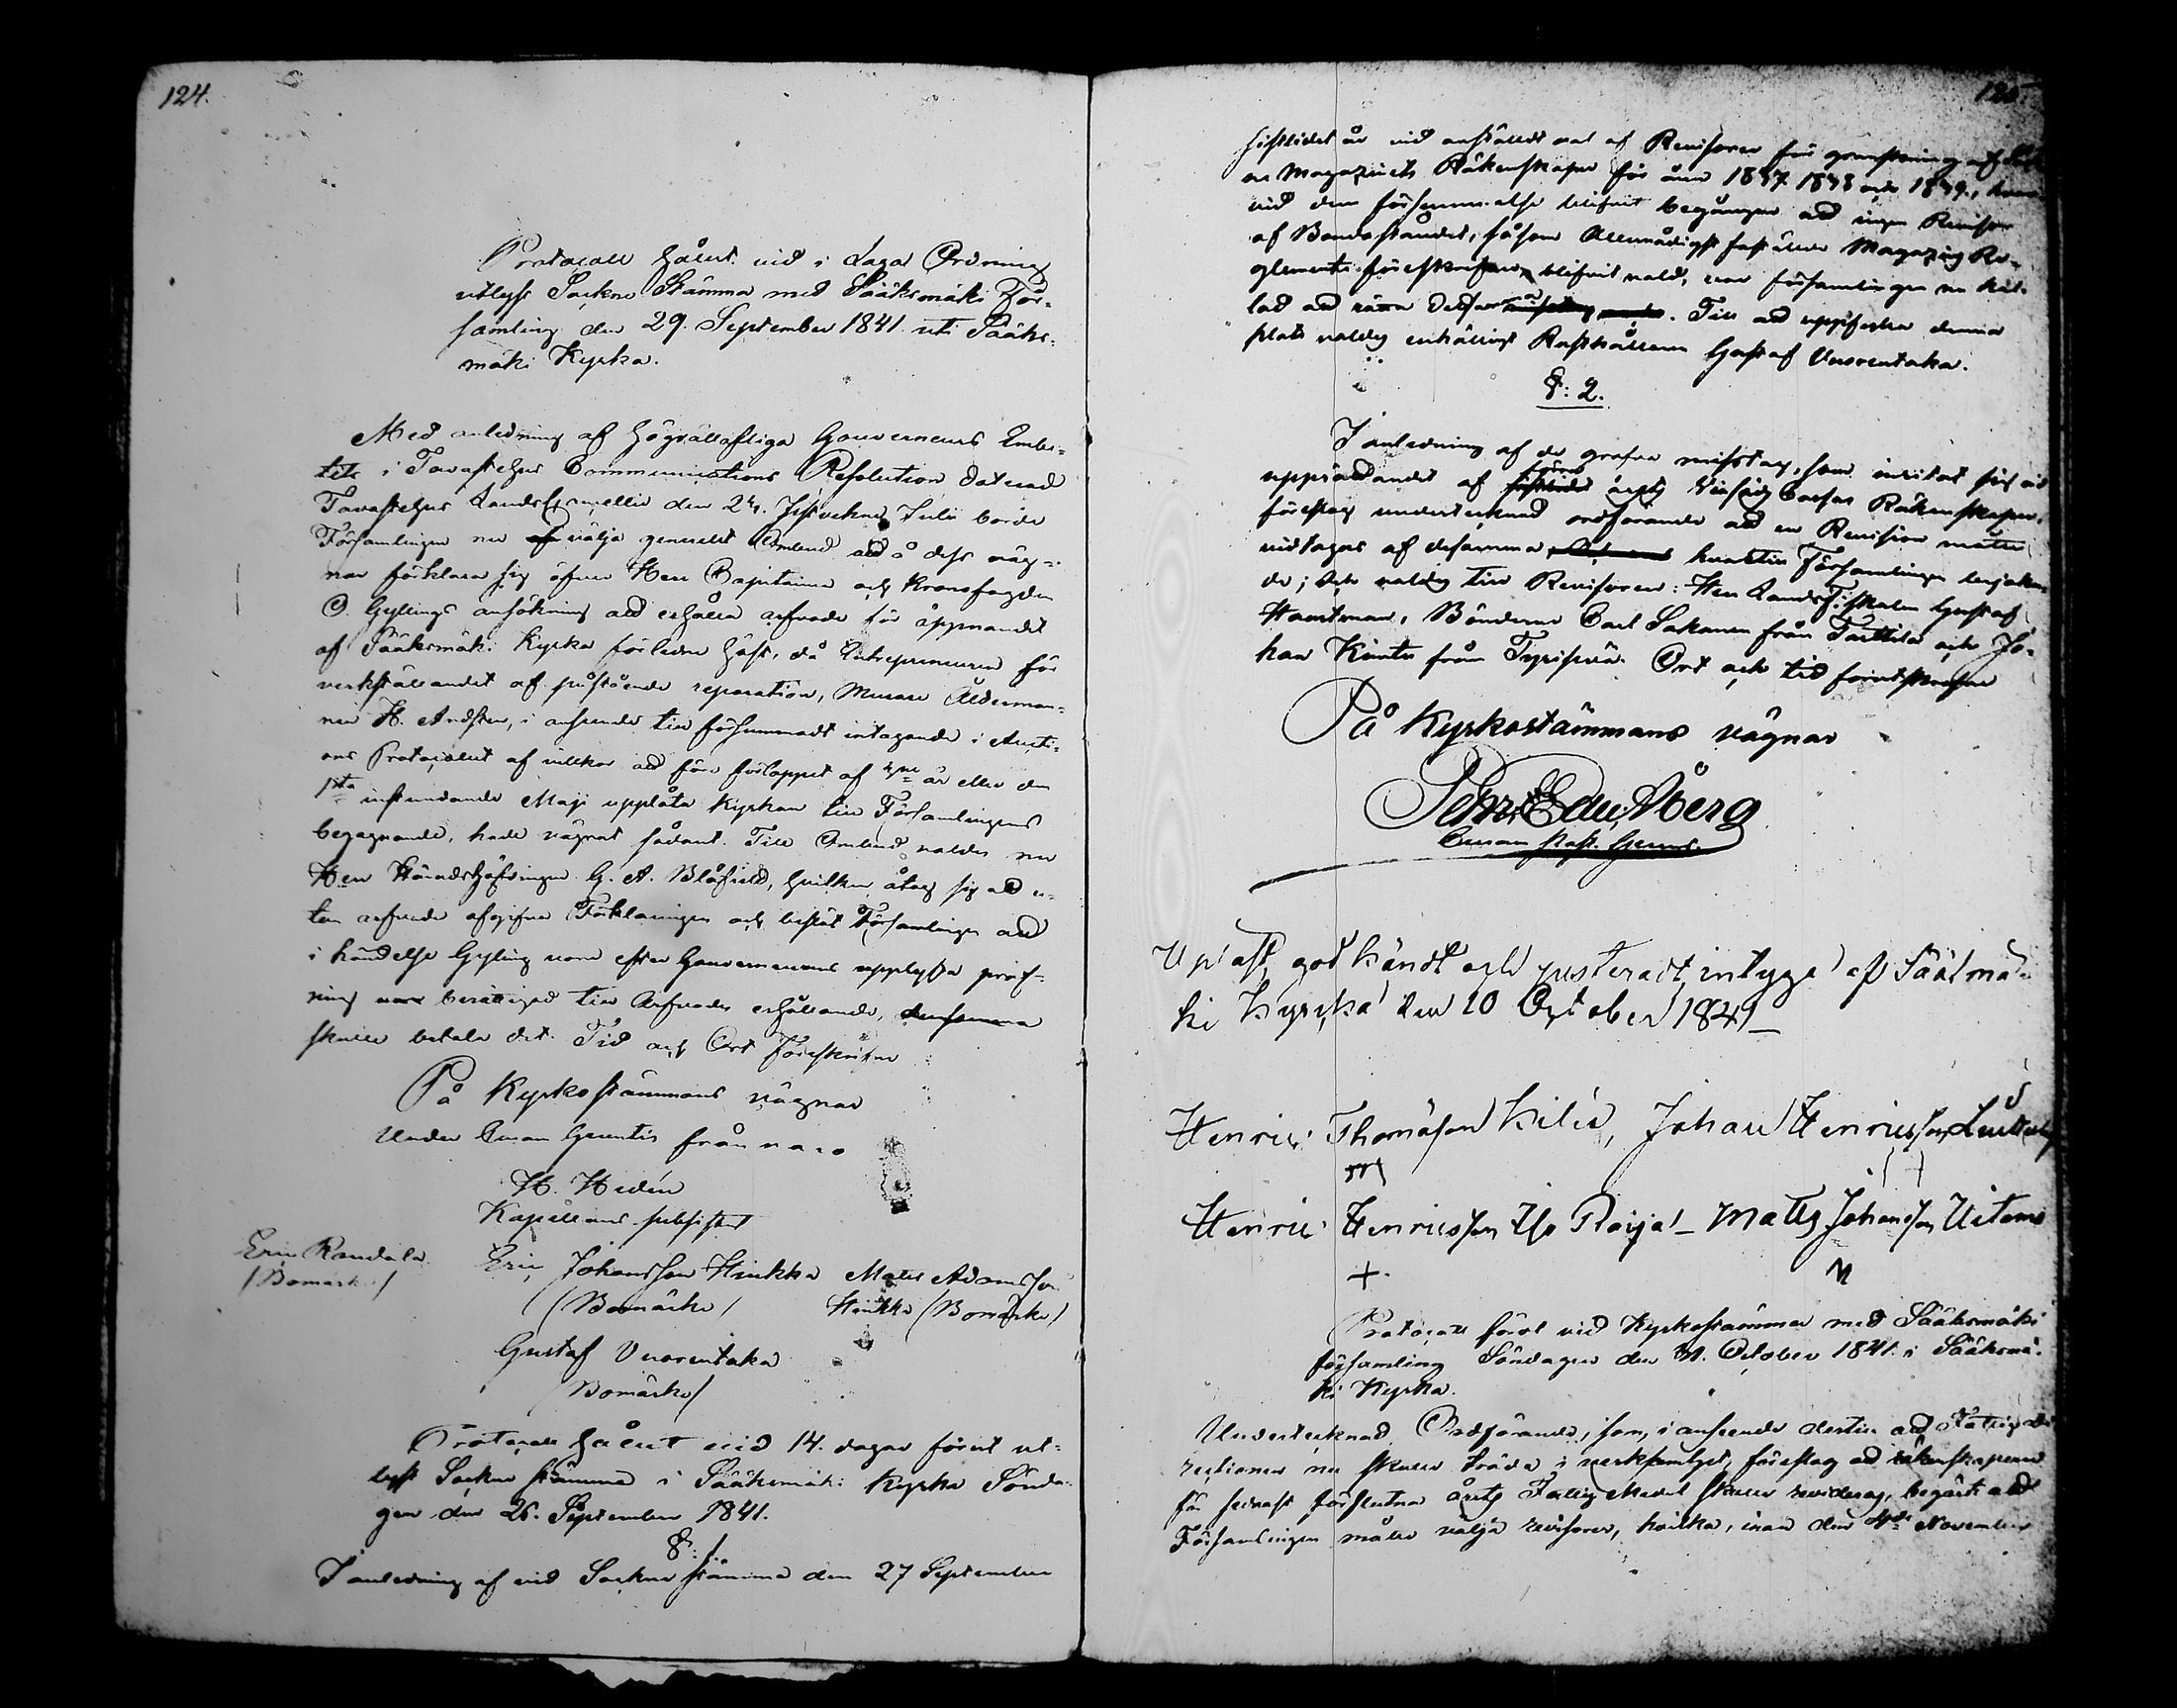 124.
Protocoll hållit vid i Laga Ordning
utlyst Sockne Stämma med Sääksmäki För-
samling den 29. September 1841 uti Sääks-
mäki Kyrka.
Med anledning af Högvällofliga Gouverneurs Embe-
tets i Tavastehus Communications Resolution daterad
Tavastehus Landscancellie den Julii borde
Församlingen nu välja generelt Ombud ad å dess väg-
nar förklara sig öfver Herr Capitaine och Kronofogden
O. Gyllings ansökning ad erhålla arfvode för
af Sääksmäki Kyrka förleden höst, då Entrepreneuren för
verkställandet af påstående reparation, Murare Ålderman-
nen H. Andsten, i anseende till försummadt intagande i Aucti-
ons Protocollet af villkor ad före förloppet af år eller den
1sta instundande Maji upplåta Kyrkan till Församlingens
begagnande, hade vägrat sådant. Till Ombud valdes nu
Herr Häradshöfdingen G. A. Blåfield, hvilken åtog sig ad u-
tan arfvode afgifva Förklaringen och beslöt Församlingen ad
i händelse Gylling vore efter Gouverneurens upplysta pröf-
ning vore berättigad till Arfvodes erhållande, densamma
skulle betala det. Tid och Ort föreskrifne
På Kyrkostämmans vägnar
Under Curam Gerentis frånvaro
H. Hedén
Kapellans
Eric Randala
/Bomärke/
Eric Johansson Hinkka Matts Adamsson
/Bomärke/ Hinkka /Bomärke/
Gustaf Vuorentaka
/Bomärke/
Protocoll hållit vid 14. dagar förut ut-
lyst Sockne stämma i Sääksmäki Kyrka Sönda-
gen den 26. September 1841.
§: 1.
I anledning af vid Sockne stämma den 27 September
125.
sistlidet år vid anstäldt val af Revisorer för granskning af
ne Magazinets Räkenskaper för åren 1837. 1838 och 1839,
vid den försummelse blifvit begången ad ingen Revisor
af Bondeståndet, såsom Allernådigst faststälde Magazins Re-
glemente föreskrifver, blifvit vald, var församlingen nu kal-
lad ad rätta detsamma. Till ad uppfylla denna
plats valdes enhälligt Rusthållaren Gustaf Vuorentaka.
§: 2.
I anledning af de grofva misstag, som insmugit sig vid
upprättandet af årets Räkenskaper,
föreslog undertecknad ordförande ad en Revision måtte
vidtagas af desamma hvartill Församlingen bejaka-
de; och valdes till Revisorer: Herr Landsfiskalen Gustaf
Hamtman, Bönderne Carl Sakanen från Tarttila och Jo-
han Kinttu från Ort och tid förutskrefne
På Kyrkostämmans vägnar
Pehr Edv. Åberg
Curam Past. Gerens.
Uplast, god kändt och justeradt, intygar af Sääkmä-
ki Kyrcka den 10 October 1841
Henric Thomasson Kilis, Johan Henricsson
Henric Henricsson Roija – Matts Johansson
Protocoll fördt vid Kyrkostämma med Sääksmäki
församling Söndagen den 31. October 1841. i Sääksmä-
ki Kyrka.
Undertecknad Ordförande, som, i anseende dertill ad Fattig di-
rectionen nu skulle träda i verksamhet, föreslog ad räkenskaperne
för sednast förflutna årets Fattig Medel skulle revideras, begärte ad
Församlingen måtte välja revisorer, hvilka, innan den November